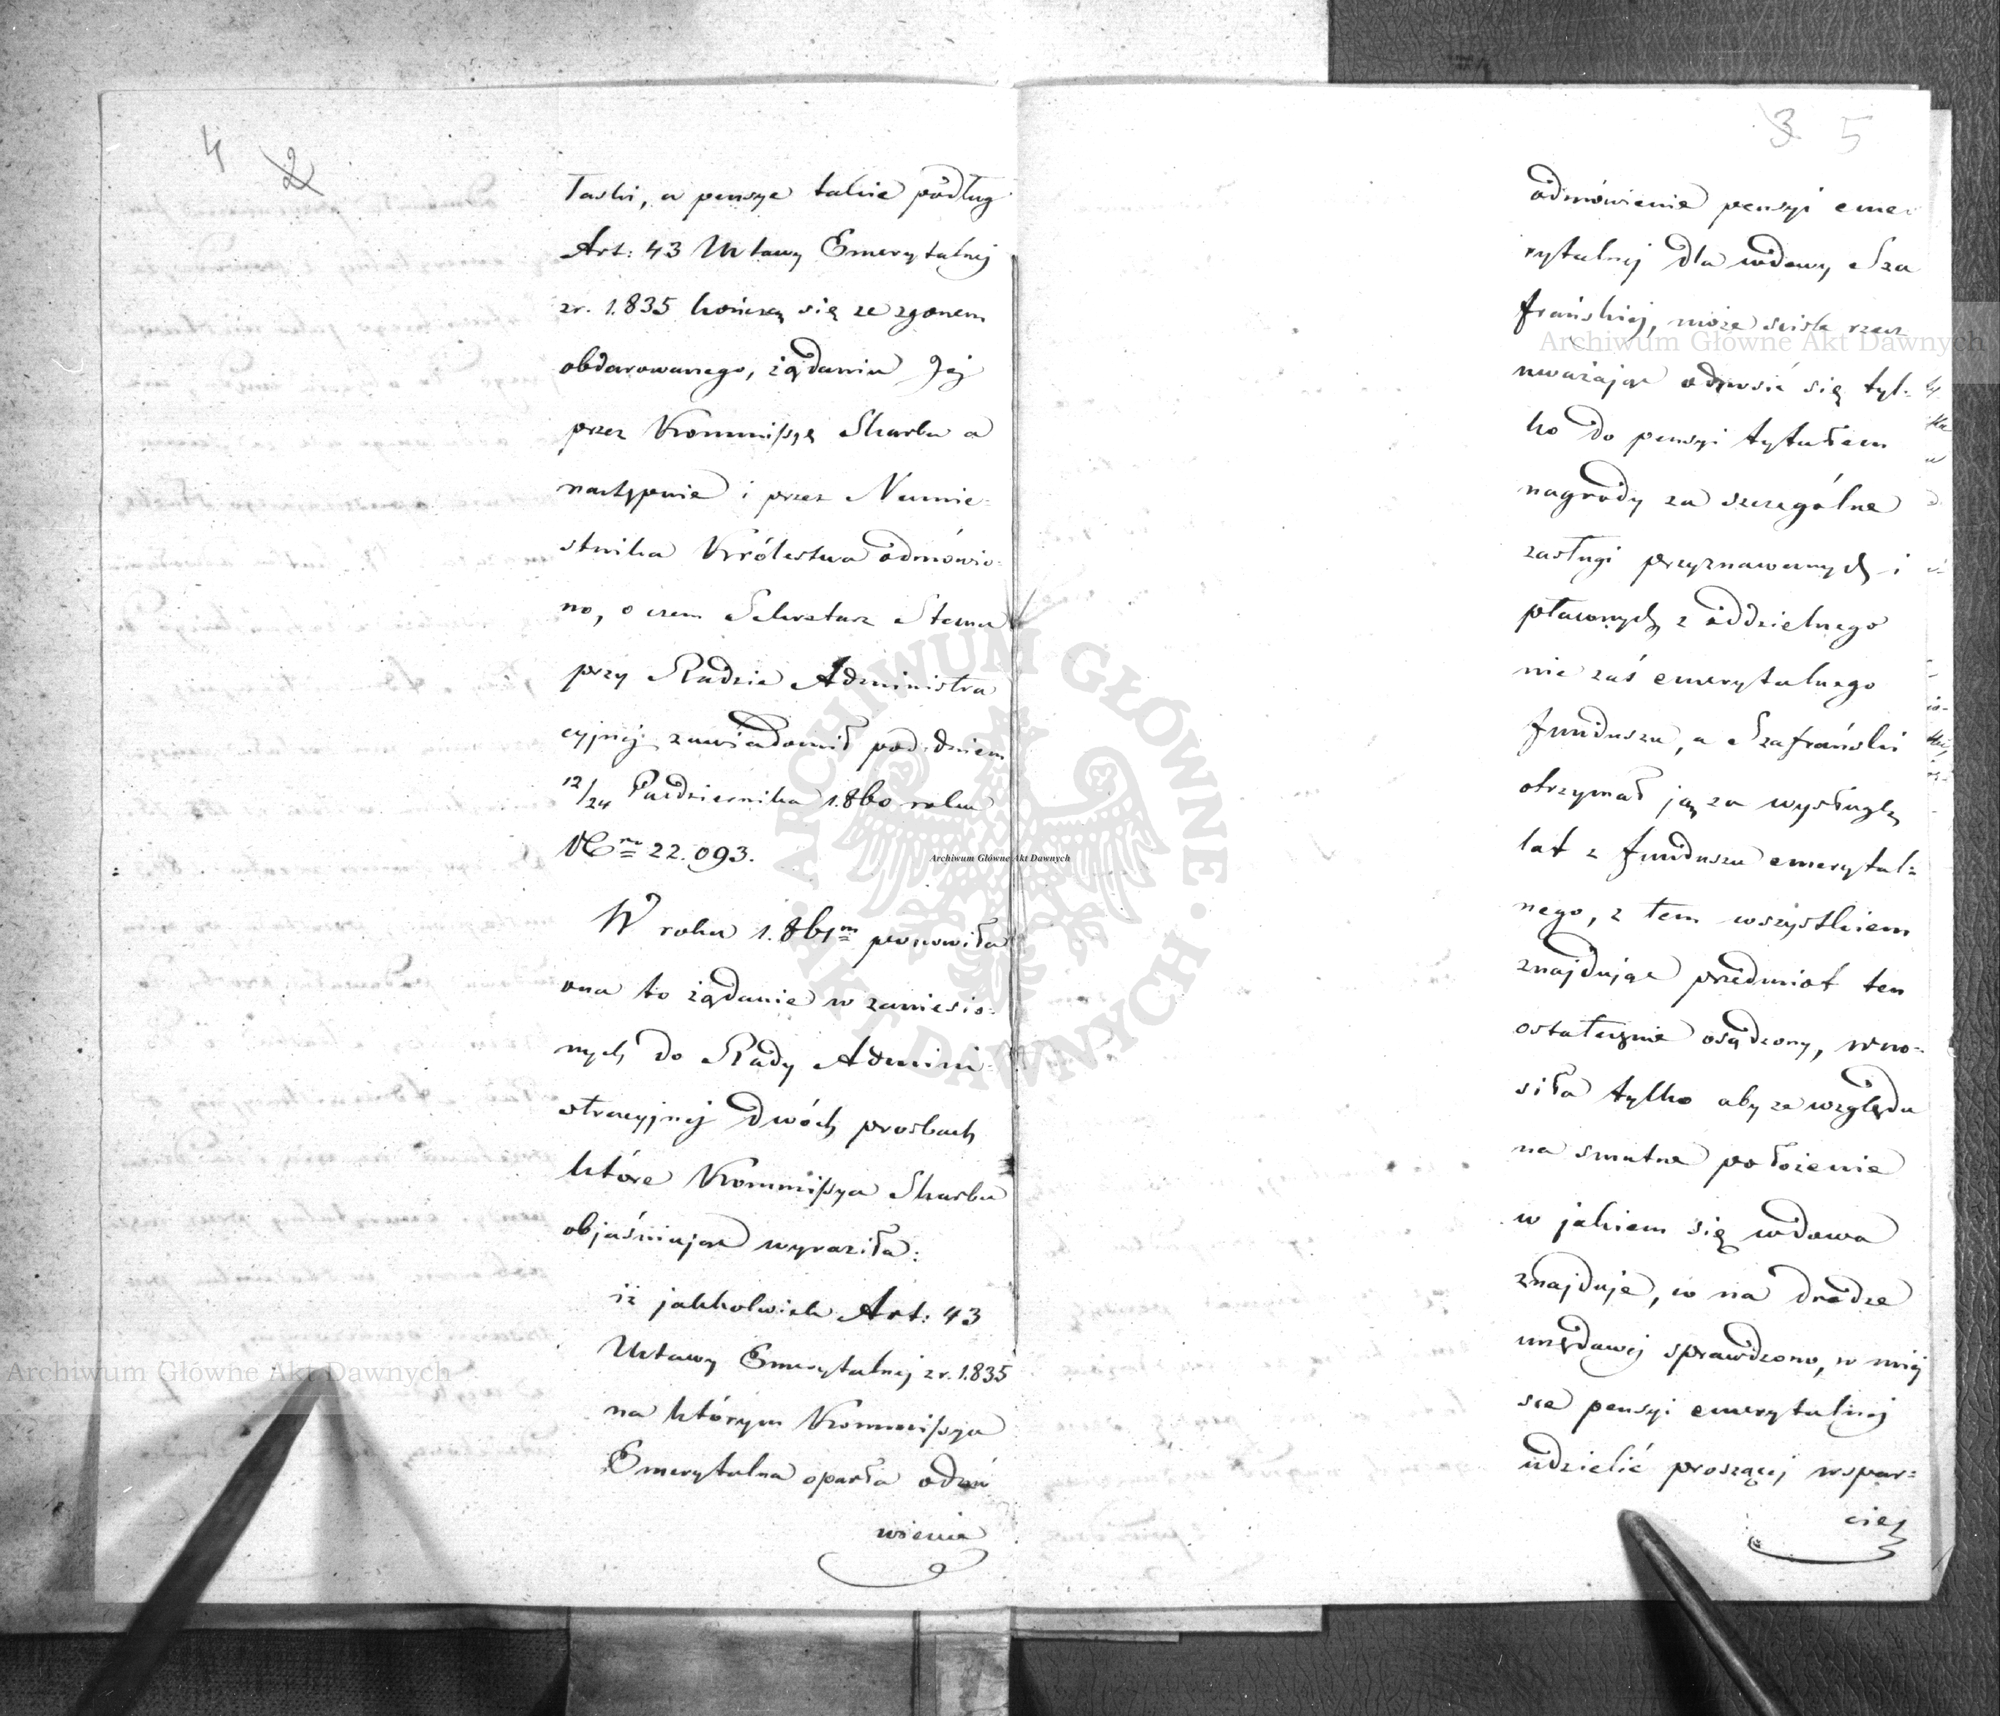 4 2
łaski, a pensye takie podług
Art: 43 Ustawy Emerytalnej
z r. 1.835 kończą się ze zgonem
obdarowanego, żądaniu Jej
przez Kommissyę Skarbu a
następnie i przez Namie-
stnika Królestwa odmówio-
no, o czem Sekretarz Stanu
przy Radzie Administra
cyjnej zawiadomił pod dniem
12/24 Października 1.860 roku
Nro 22.093.
W roku 1.861m ponowiła
ona to żądanie w zaniesio-
nych do Rady Admini-
stracyjnej dwóch prosbach
które Kommissya Skarbu
objaśniając wyraziła:
iż jakkolwiek Art: 43
Ustawy Emerytalnej z r. 1.835
na którym Kommissya
Emerytalna oparła odmó
wienie
3 5
odmówienie pensyi eme
rytalnej dla wdowy Sza
frańskiej, może ściśle rzecz
uważając odnosić się tyl-
ko do pensyi tytułem
nagrody za szczególne
zasługi przyznawanych i
płaconych z oddzielnego
nie zaś emerytalnego
funduszu, a Szafrański
otrzymał ją za wysługę
lat z funduszu emerytal-
nego, z tem wszystkiem
znajdując przedmiot ten
ostatecznie osądzony, wno-
siła tylko aby ze względu
na smutne położenie
w jakiem się wdowa
znajduje, co na drodze
urzędowej sprawdzono, w miej
sce pensyi emerytalnej
udzielić proszącej wspar-
cie
Archiwum Główne Akt Dawnych
Archiwum Główne Akt Dawnych
Archiwum Główne Akt Dawnych
ARCHIWUM GŁÓWNE AKT DAWNYCH